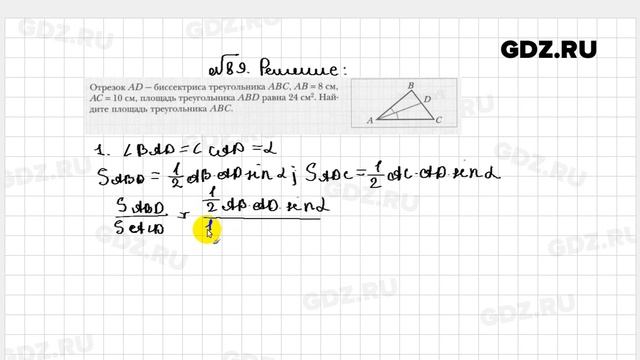 GDZ.RU
№89. Решение:
Отрезок AD — биссектриса треугольника ABC, AB = 8 см,
AC = 10 см, площадь треугольника ABD равна 24 см². Най-
дите площадь треугольника ABC.
B
D
A
C
1. ∠BAD = ∠CAD = α
S ABD = 1/2 AB·AD·sin α; S ADC = 1/2 AC·AD·sin α
S ABD / S CAD = 1/2 AB·AD·sin α / 1